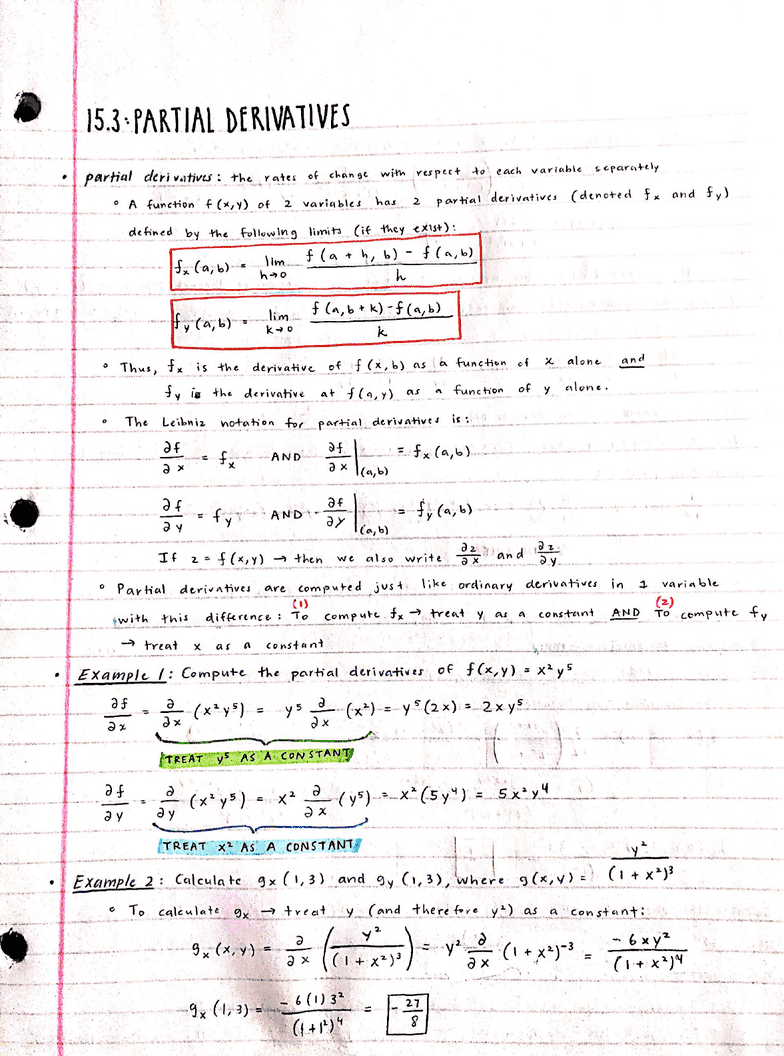 15.3: PARTIAL DERIVATIVES
• partial derivatives: the rates of change with respect to each variable separately
◦ A function f(x,y) of 2 variables has 2 partial derivatives (denoted fₓ and f_y)
defined by the following limits (if they exist):
fₓ(a,b) = lim h→0 f(a+h, b) - f(a,b) / h
f_y(a,b) = lim k→0 f(a,b+k) - f(a,b) / k
◦ Thus, fₓ is the derivative of f(x,b) as a function of x alone and
f_y is the derivative at f(a,y) as a function of y alone.
◦ The Leibniz notation for partial derivatives is:
∂f/∂x = fₓ AND ∂f/∂x |(a,b) = fₓ(a,b)
∂f/∂y = f_y AND ∂f/∂y |(a,b) = f_y(a,b)
If z = f(x,y) → then we also write ∂z/∂x and ∂z/∂y
◦ Partial derivatives are computed just like ordinary derivatives in 1 variable
(1) (2)
with this difference: To compute fₓ → treat y as a constant AND To compute f_y
→ treat x as a constant
• Example 1: Compute the partial derivatives of f(x,y) = x²y⁵
∂f/∂x = ∂/∂x (x²y⁵) = y⁵ ∂/∂x (x²) = y⁵(2x) = 2xy⁵
TREAT y⁵ AS A CONSTANT
∂f/∂y = ∂/∂y (x²y⁵) = x² ∂/∂x (y⁵) = x²(5y⁴) = 5x²y⁴
TREAT x² AS A CONSTANT
• Example 2: Calculate gₓ(1,3) and g_y(1,3), where g(x,y) = y²/(1+x²)³
◦ To calculate gₓ → treat y (and therefore y²) as a constant:
gₓ(x,y) = ∂/∂x (y²/(1+x²)³) = y² ∂/∂x (1+x²)⁻³ = -6xy²/(1+x²)⁴
gₓ(1,3) = -6(1)3²/(1+1²)⁴ = -27/8